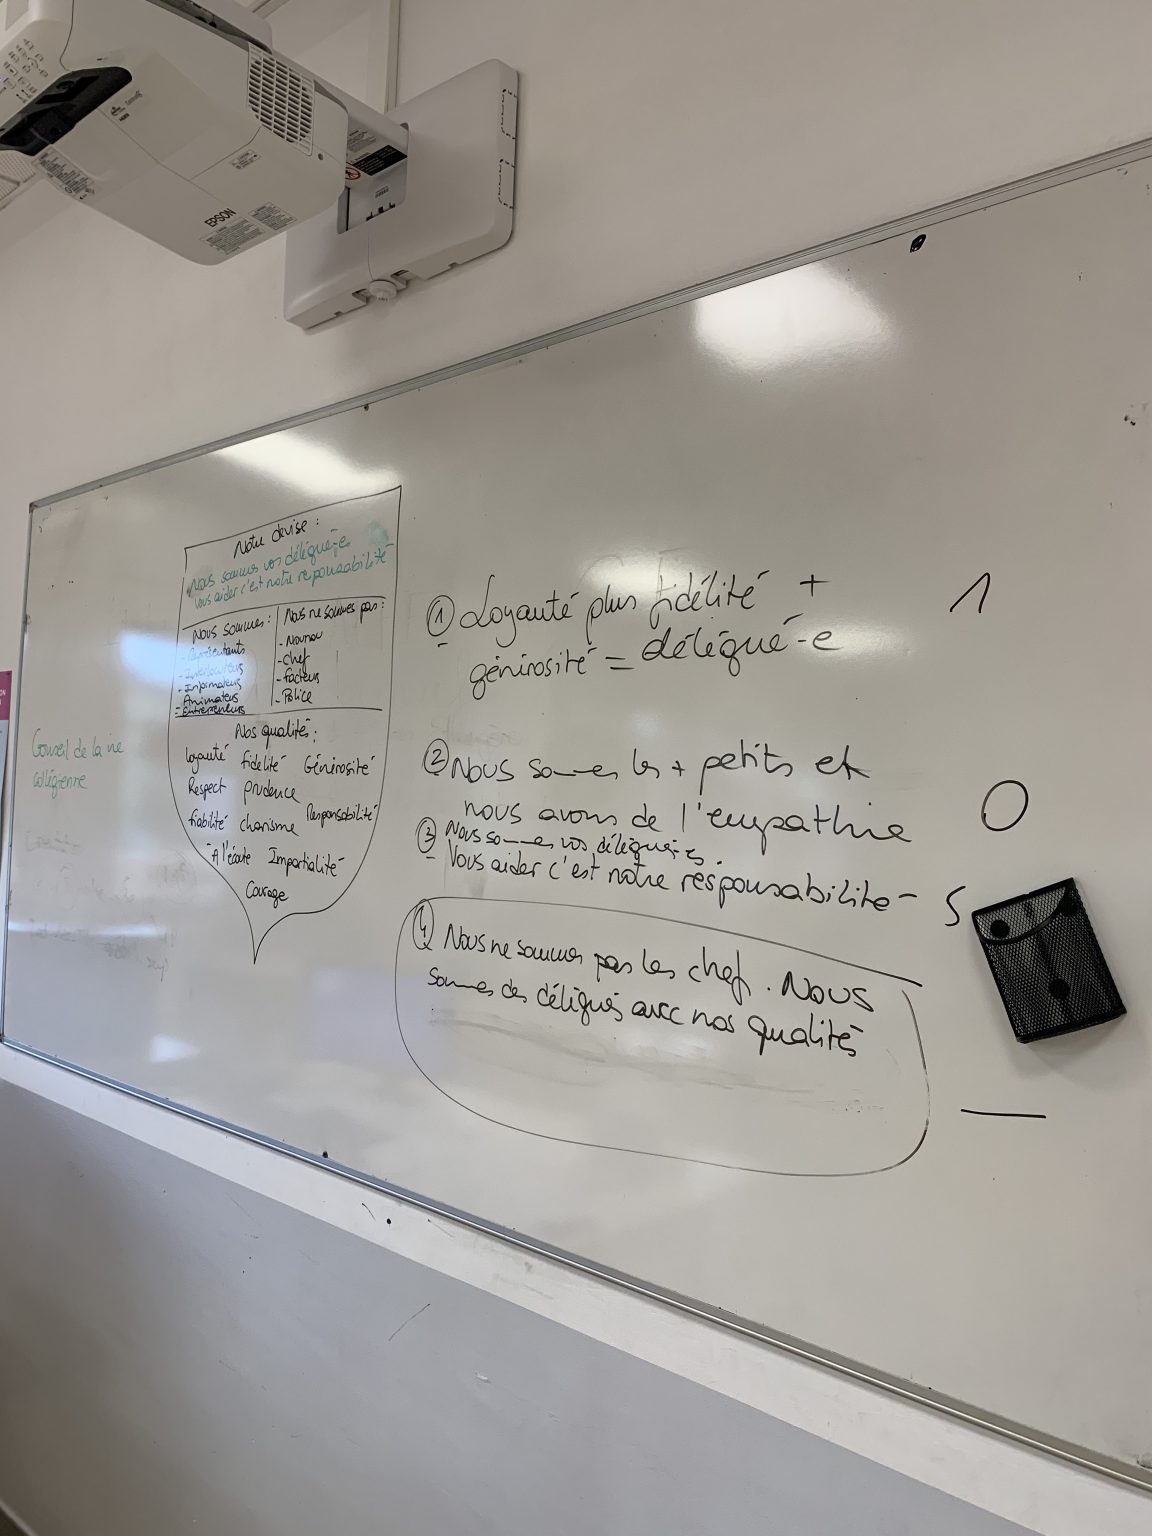 EPSON
Notre devise :
Nous sommes vos délégué-e
vous aider c'est notre responsabilité
Nous sommes :
- Représentants
- Interlocuteurs
- Informateurs
- Animateurs
- Entrepreneurs
Nous ne sommes pas :
- Nounou
- chef
- facteurs
- Police
Nos qualités :
loyauté fidélité Générosité
Respect prudence
fiabilité charisme Responsabilité
A l'écoute Impartialité
Courage
Conseil de la vie
collégienne
① Loyauté plus fidélité + 1
générosité = délégué-e
② Nous sommes les + petits et
nous avons de l'empathie 0
③ Nous sommes vos délégué-es.
Vous aider c'est notre responsabilité 5
④ Nous ne sommes pas les chef. Nous
sommes des délégués avec nos qualités
—